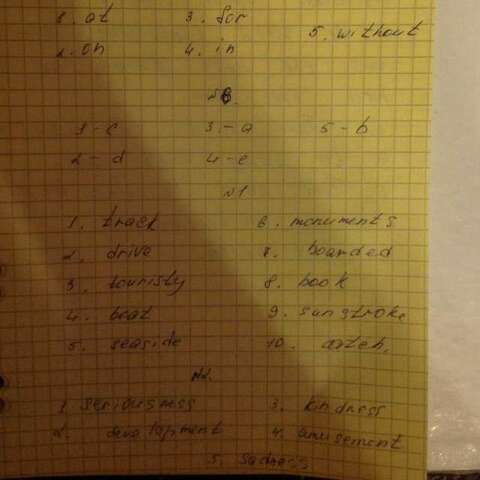 1. at 3. for 5. without
2. on 4. in
№6.
1-c 3.-a 5-b
2-d 4-e
№1
1. track 6. monuments
2. drive 7. boarded
3. touristy 8. book
4. boat 9. sunstroke
5. seaside 10.
№2.
1. seriousness 3. kindness
2. development 4. amusement
5. sadness